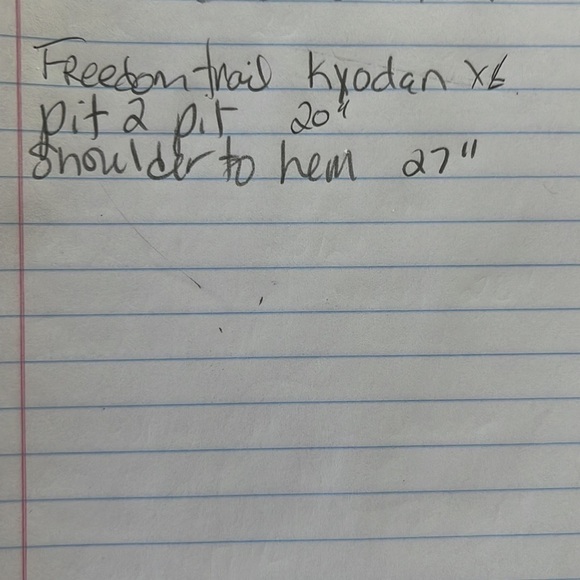 Freedom trail Kyodan XL
pit 2 pit 20"
Shoulder to hem 27"